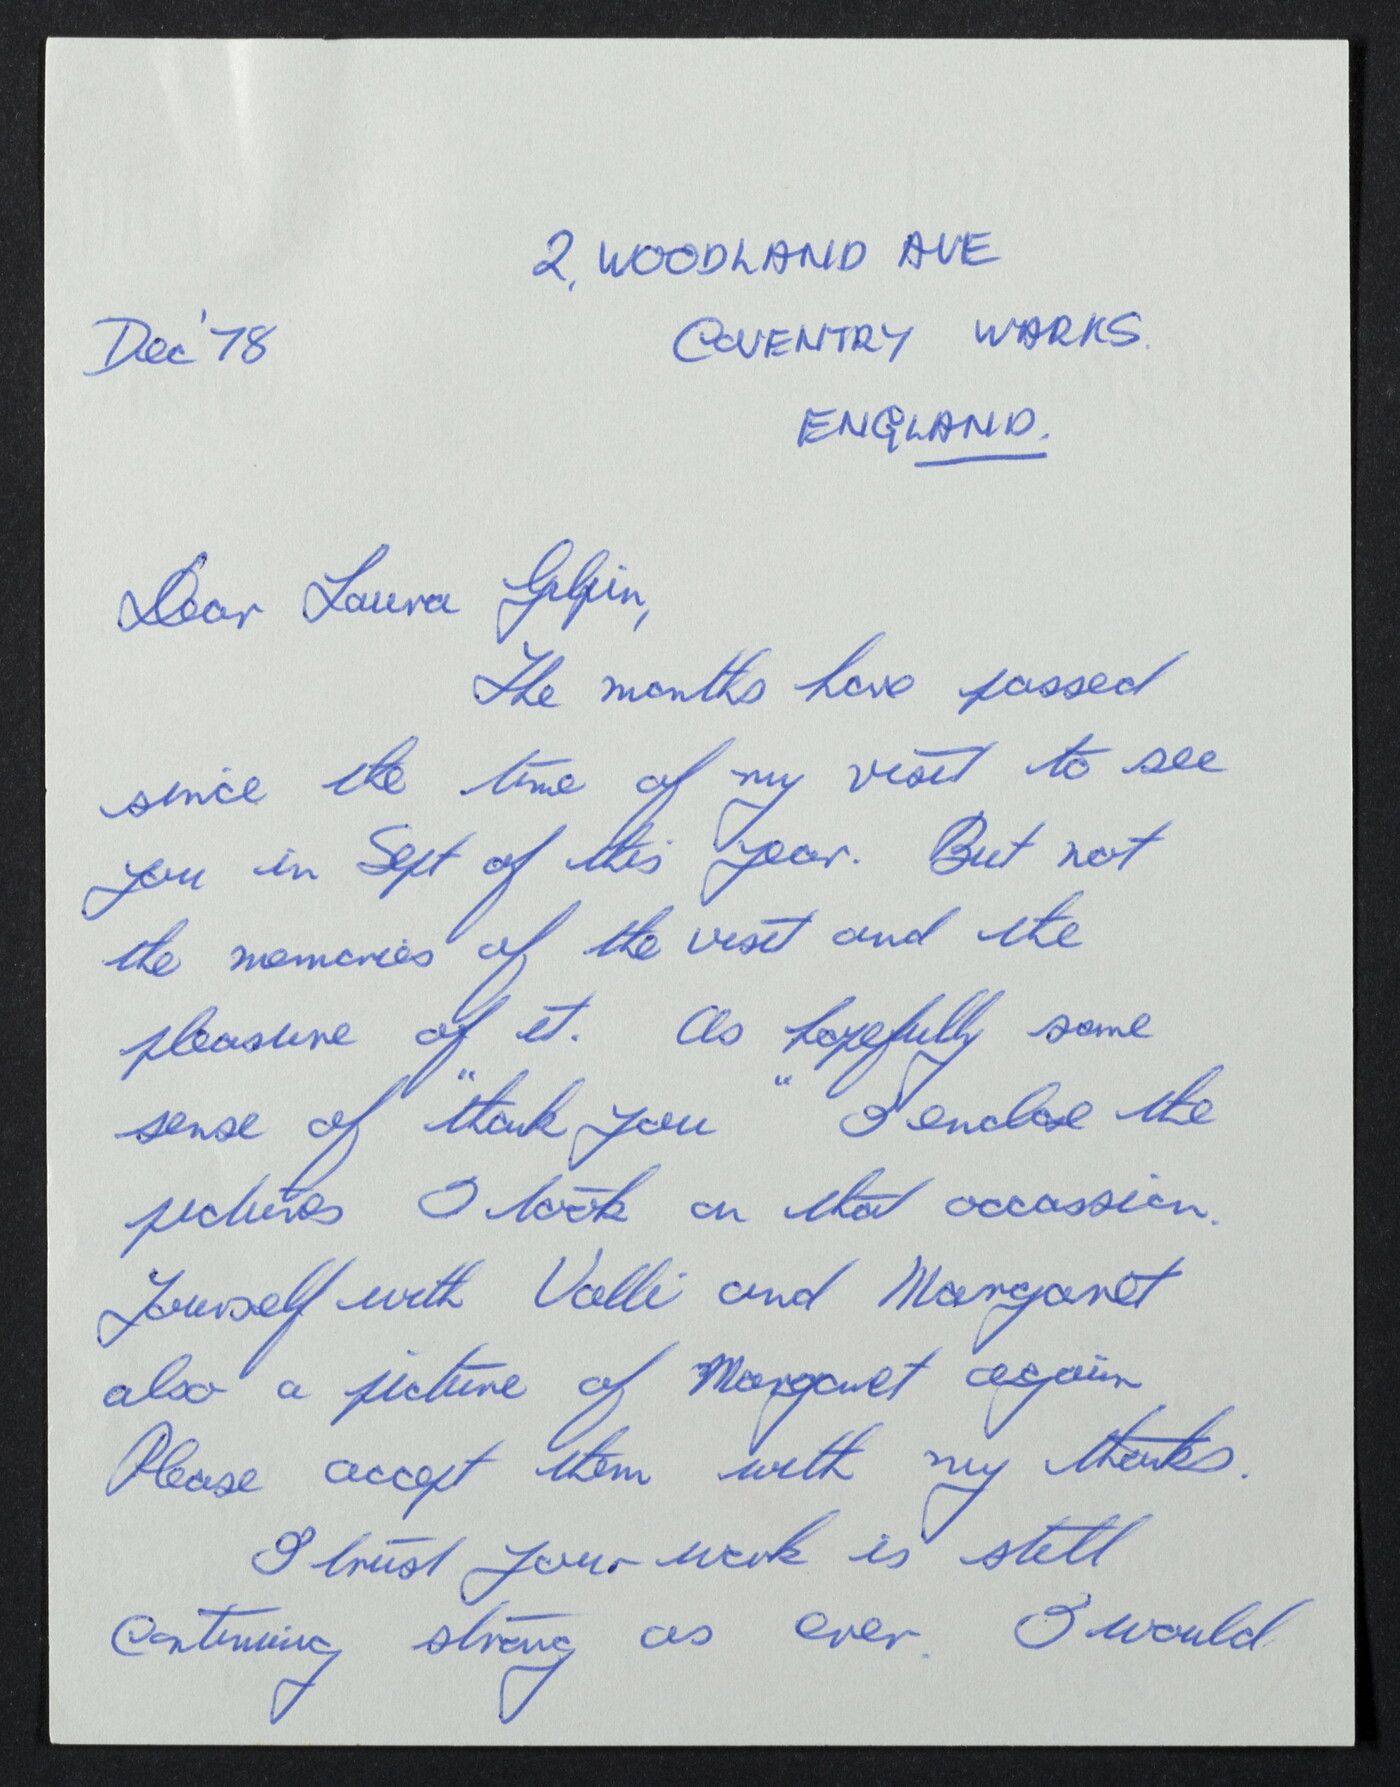 2, WOODLAND AVE
Dec '78
COVENTRY WARKS.
ENGLAND.
Dear Laura Gilpin,
The months have passed
since the time of my visit to see
you in Sept of this year. But not
the memories of the visit and the
pleasure of it. As hopefully some
sense of "thank you" I enclose the
pictures I took on that occassion.
Yourself with Valli and Margaret
also a picture of Margaret again
Please accept them with my thanks.
I trust your work is still
Continuing strong as ever. I would